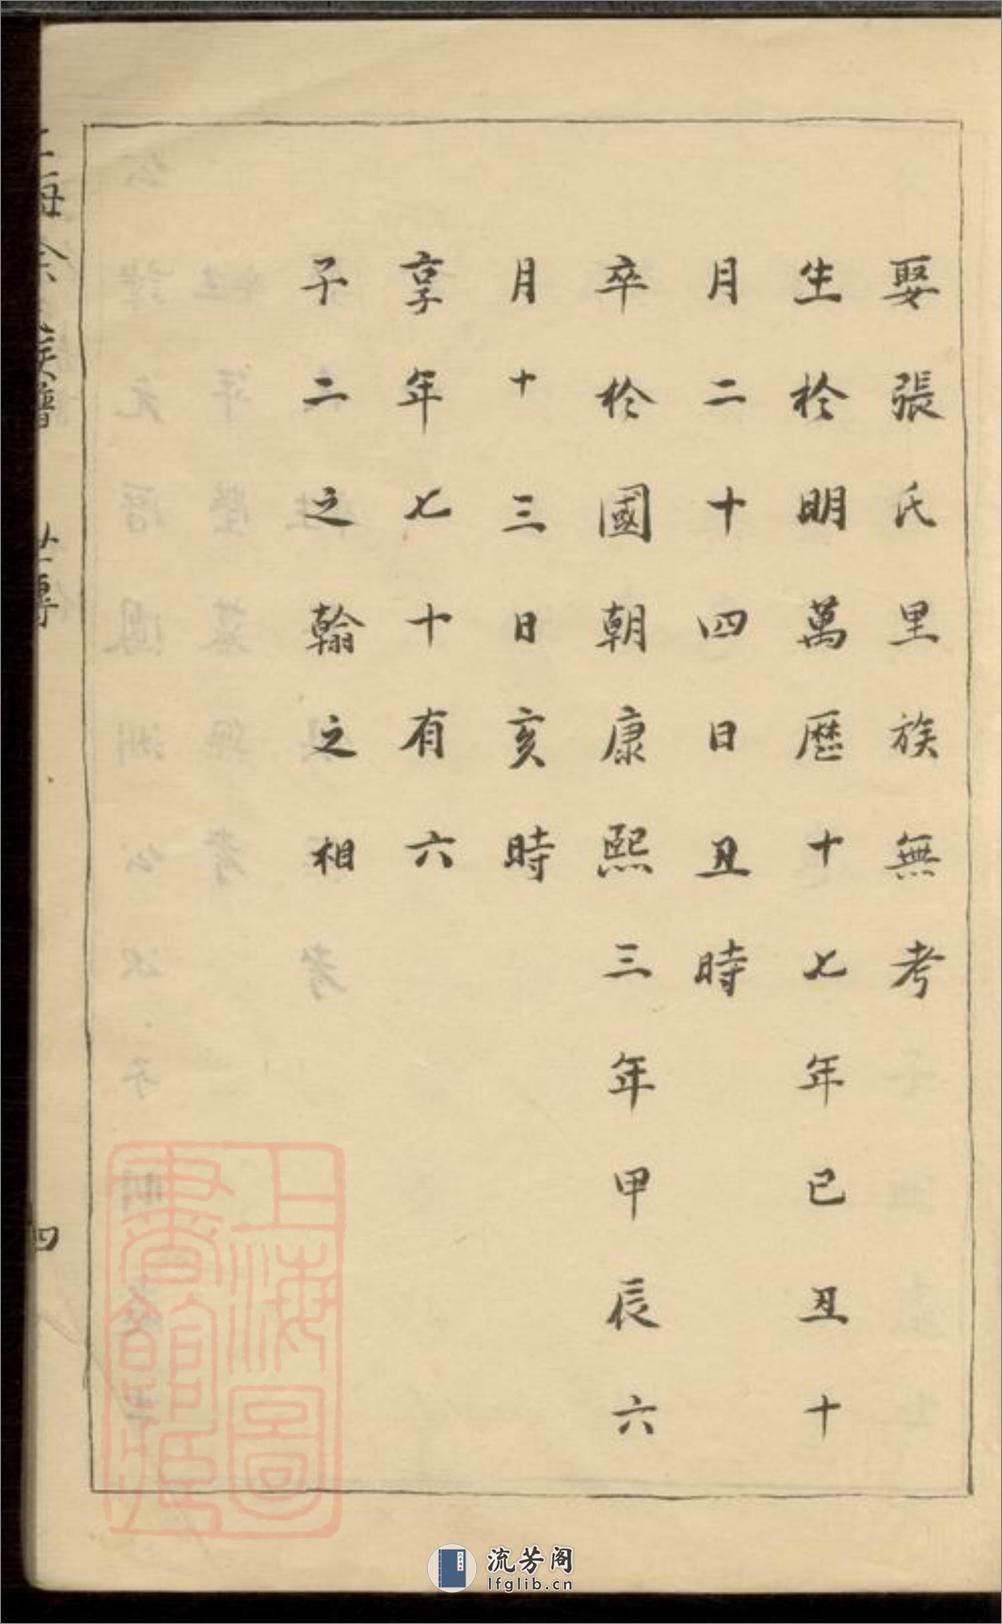 娶張氏里族無考
生於明萬歷十七年已丑十
月二十四日丑時
卒於國朝康熙三年甲辰六
月十三日亥時
享年七十有六
子二之翰之相
族譜
四
上海圖書館藏
流芳阁
lfglib.cn